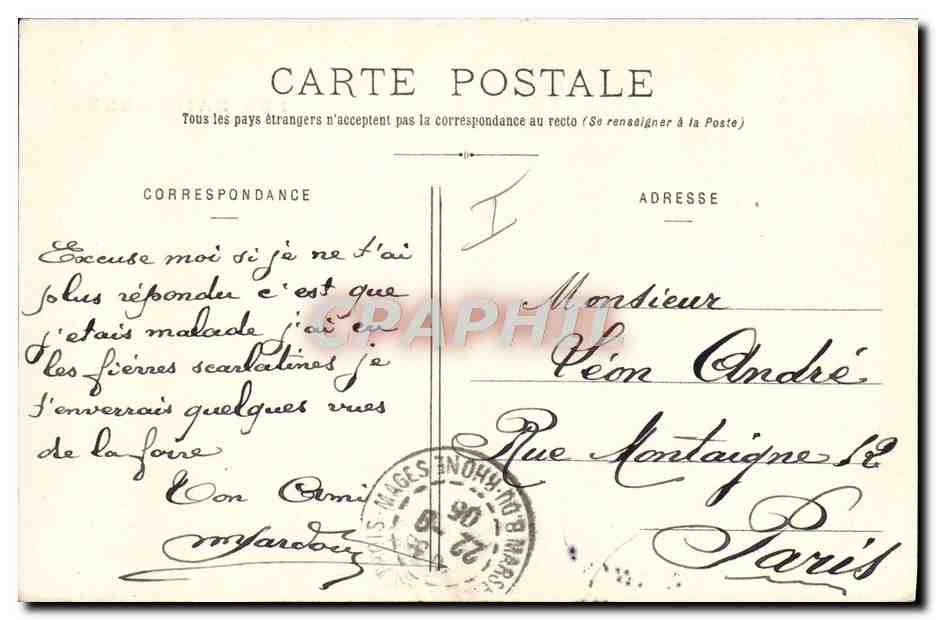 CARTE POSTALE
Tous les pays étrangers n'acceptent pas la correspondance au recto (Se renseigner à la Poste)
CORRESPONDANCE
Excuse moi si je ne t'ai
plus répondu c'est que
j'etais malade j'ai eu
les fiérres scarlatines je
t'enverrais quelques vues
de la foire
Ton Ami
ADRESSE
I
Monsieur
Léon André
Rue Montaigne 12
Paris
CPAPHIL
MAGES B.DU-RHONE
22
06